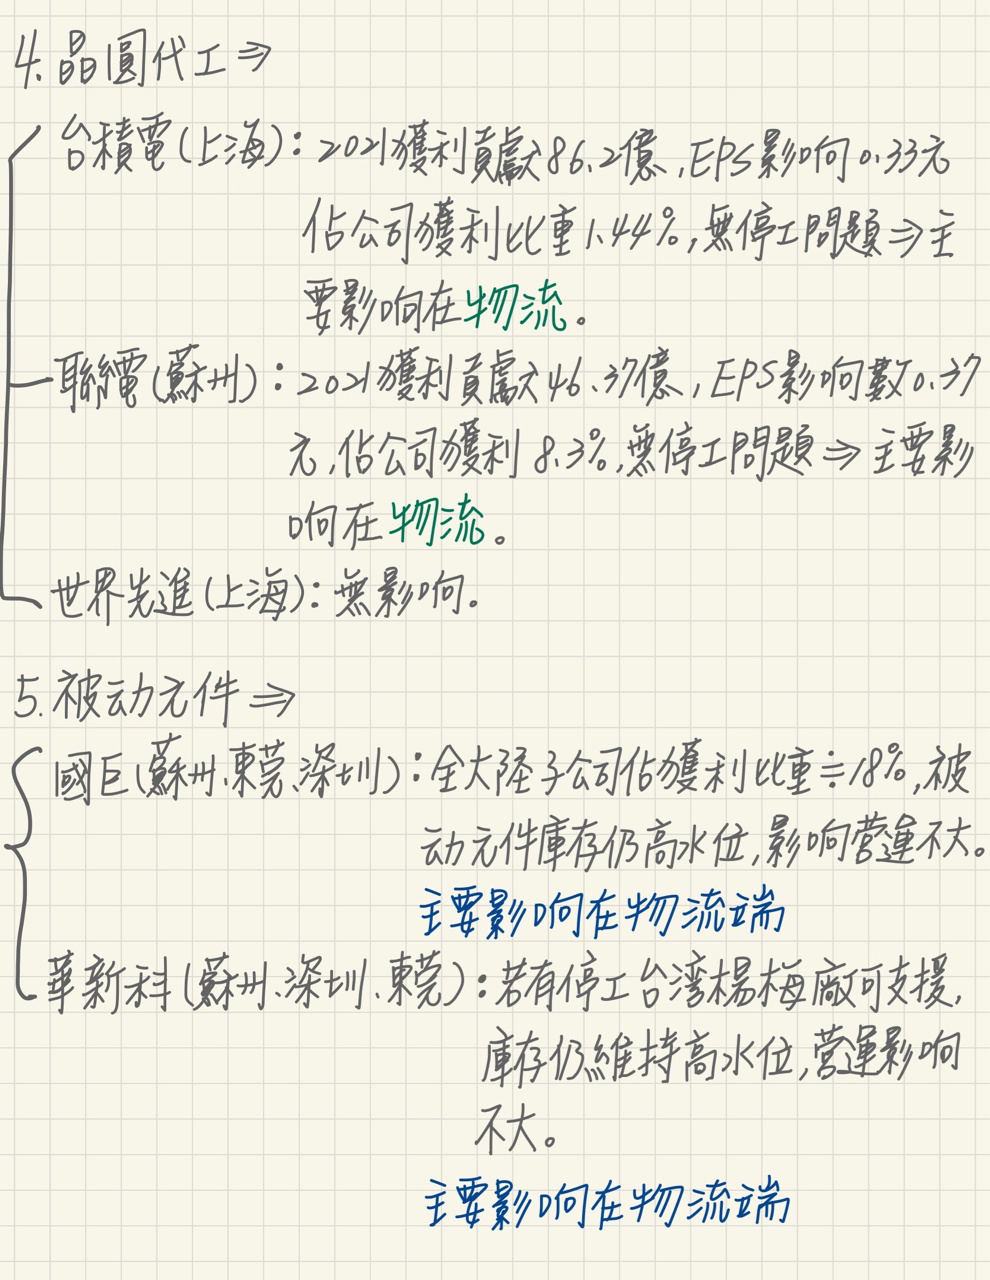 4. 晶圓代工⇒
台積電(上海)：2021獲利貢獻86.2億,EPS影响0.33元
佔公司獲利比重1.44%,無停工問題⇒主
要影响在物流。
聯電(蘇州)：2021獲利貢獻46.37億,EPS影响數0.37
元,佔公司獲利8.3%,無停工問題⇒主要影
响在物流。
世界先進(上海)：無影响。
5. 被动元件⇒
國巨(蘇州、東莞、深圳)：全大陸子公司佔獲利比重≑18%,被
动元件庫存仍高水位,影响營運不大。
主要影响在物流端
華新科(蘇州、深圳、東莞)：若有停工台湾楊梅廠可支援,
庫存仍維持高水位,營運影响
不大。
主要影响在物流端